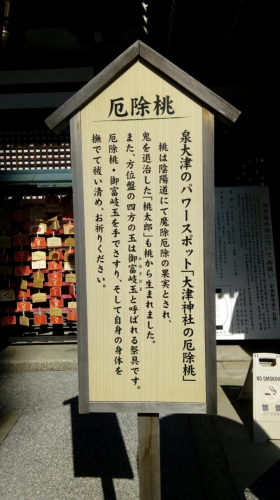 厄除桃
泉大津のパワースポット「大津神社の厄除桃」
桃は陰陽道にて魔除厄除の果実とされ、
鬼を退治した「桃太郎」も桃から生まれました。
また、方位盤の四方の玉は御富岐玉と呼ばれる祭具です。
厄除桃・御富岐玉を手でさすり、そして自身の身体を
撫でて祓い清め、お祈りください。
NO SMOKING